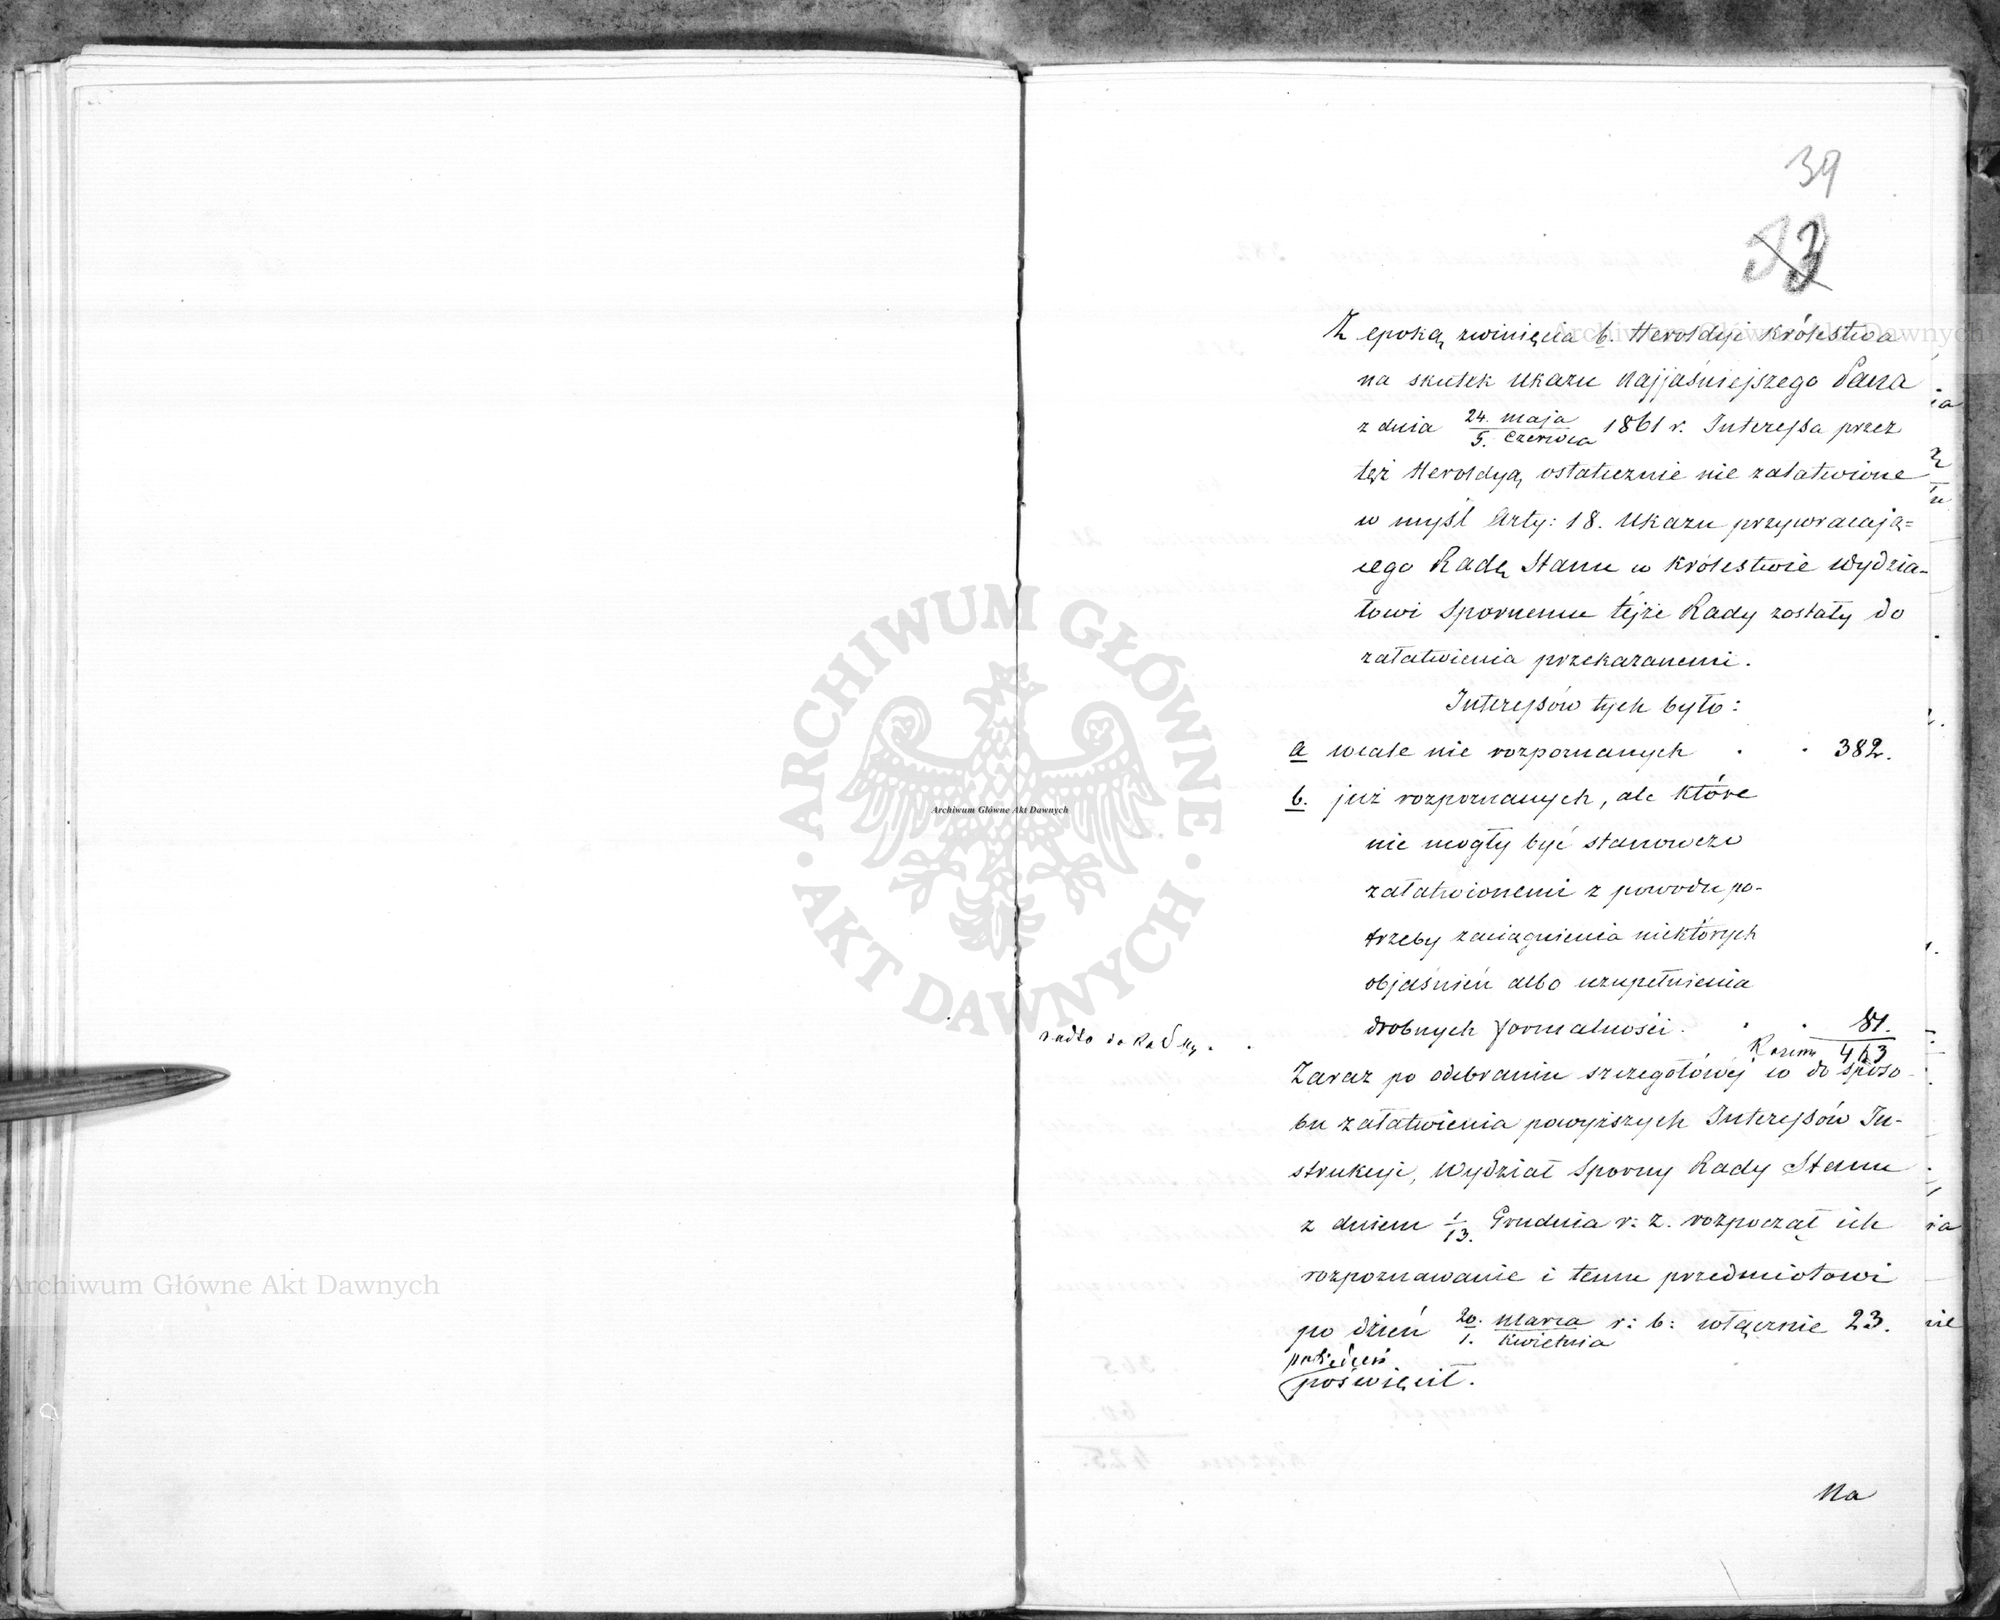 39
33
Z epoką zwinięcia b. Heroldyi Królestwa
na skutek Ukazu Najjaśniejszego Pana
z dnia 24. Maja / 5. Czerwca 1861 r. Interessa przez
też Heroldyą ostatecznie nie załatwione
w myśl Arty: 18. Ukazu przywracają=
cego Radę Stanu w Królestwie Wydzia-
łowi Spornemu tejże Rady zostały do
załatwienia przekazanemi.
Interessów tych było:
a wcale nie rozpoznanych . . 382.
b. już rozpoznanych, ale które
nie mogły być stanowczo
załatwionemi z powodu po-
trzeby zaciągnienia niektórych
objaśnień albo uzupełnienia
drobnych formalności . . . 81.
Razem 463
Zaraz po odebraniu szczegółowéj co do sposo-
bu załatwienia powyższych Interessów In-
strukcyi, Wydział Sporny Rady Stanu
z dniem 1/13. Grudnia r: z. rozpoczął ich
rozpoznawanie i temu przedmiotowi
po dzień 20. Marca / 1. Kwietnia r: b: włącznie 23.
posiedzeń
poświęcił.
Na
Archiwum Główne Akt Dawnych
ARCHIWUM GŁÓWNE
AKT DAWNYCH
Archiwum Główne Akt Dawnych
Archiwum Główne Akt Dawnych